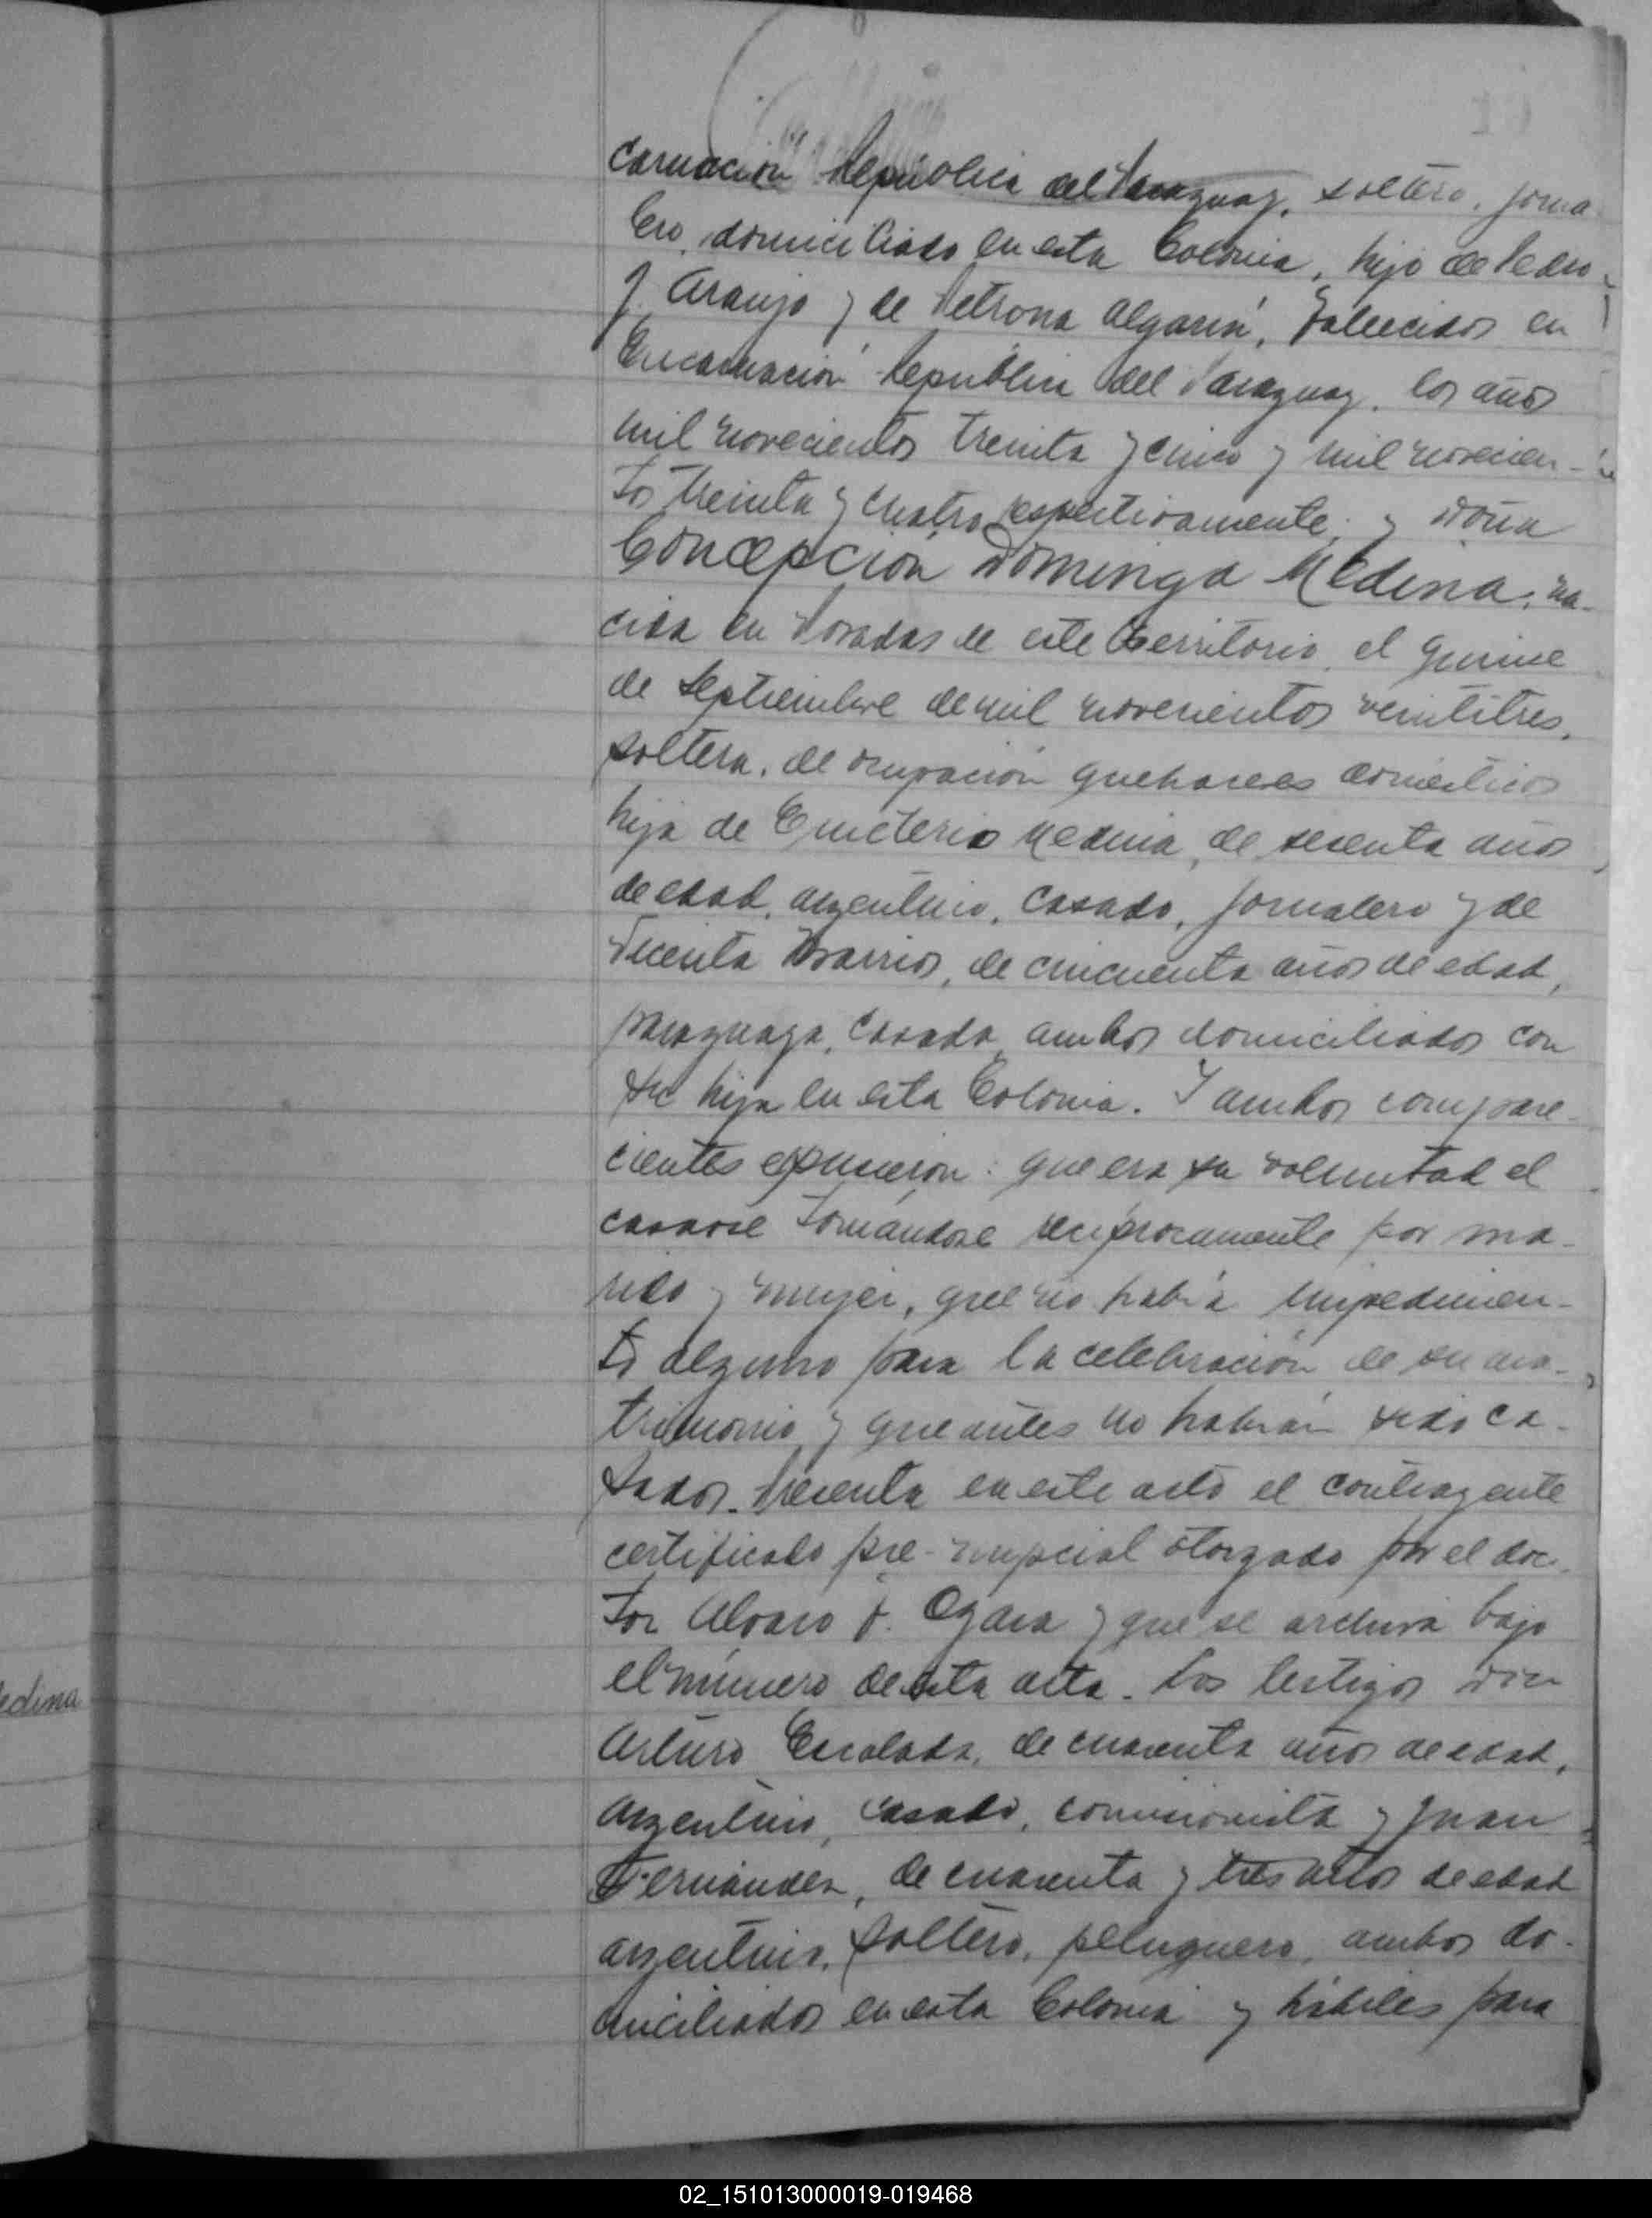 carnación República del Paraguay, soltero, jorna-
lero, domiciliado en esta Colonia, hijo de Pedro
J. Araujo y de Petrona Algarin, fallecidos en
Encarnación República del Paraguay, los años
mil novecientos treinta y cinco y mil novecien-
tos treinta y cuatro respectivamente; y doña
Concepción Dominga Medina, na-
cida en Posadas de este territorio, el quince
de Septiembre de mil novecientos veintitres,
soltera, de ocupación quehaceres domésticos
hija de Emeterio Medina, de sesenta años
de edad, argentino, casado, jornalero y de
Vicenta Barrios, de cincuenta años de edad,
paraguaya, casada, ambos domiciliados con
su hija en esta Colonia. Y ambos compare-
cientes expusieron: que era su voluntad el
casarse tomándose recíprocamente por ma-
rido y mujer, que no había impedimen-
to alguno para la celebración de su ma-
trimonio y que antes no habían sido ca-
sados. Presenta en este acto el contrayente
certificado pre-nupcial otorgado por el doc-
tor Alvaro F. Ogara y que se archiva bajo
el número de esta acta. Los testigos don
edina
Arturo Escalada, de cuarenta años de edad,
argentino, casado, comisionista y Juan
Fernández, de cuarenta y tres años de edad
argentino, soltero, peluquero, ambos do-
miciliados en esta Colonia y hábiles para
02_151013000019-019468